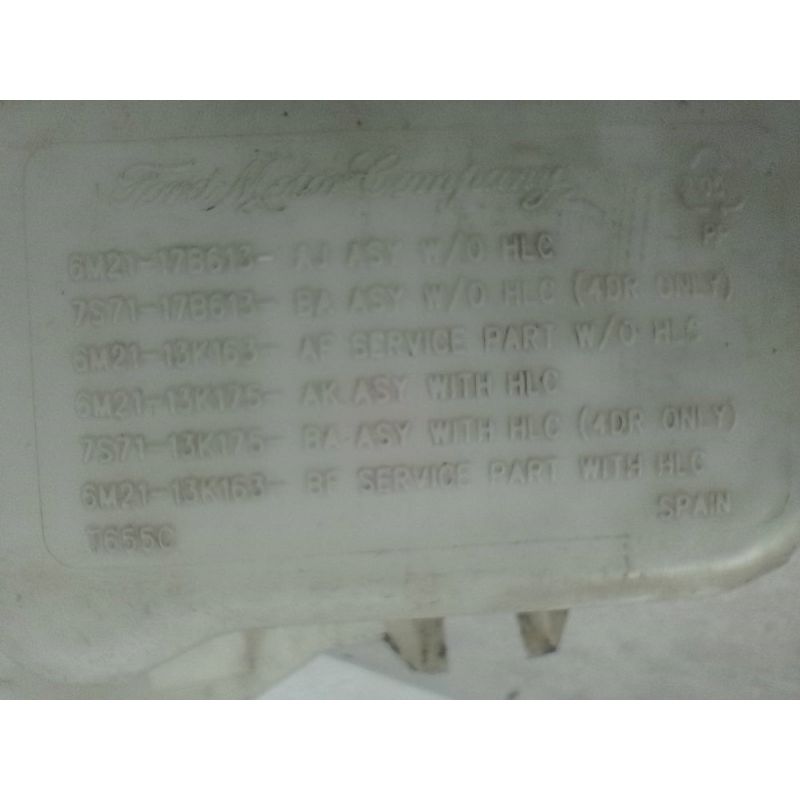 Ford Motor Company
PP
6M21-17B613- AJ ASY W/O HLC
7S71-17B613- BA ASY W/O HLC (4DR ONLY)
6M21-13K163- AF SERVICE PART W/O HLC
6M21-13K175- AK ASY WITH HLC
7S71-13K175- BA ASY WITH HLC (4DR ONLY)
6M21-13K163- BF SERVICE PART WITH HLC
SPAIN
T655C